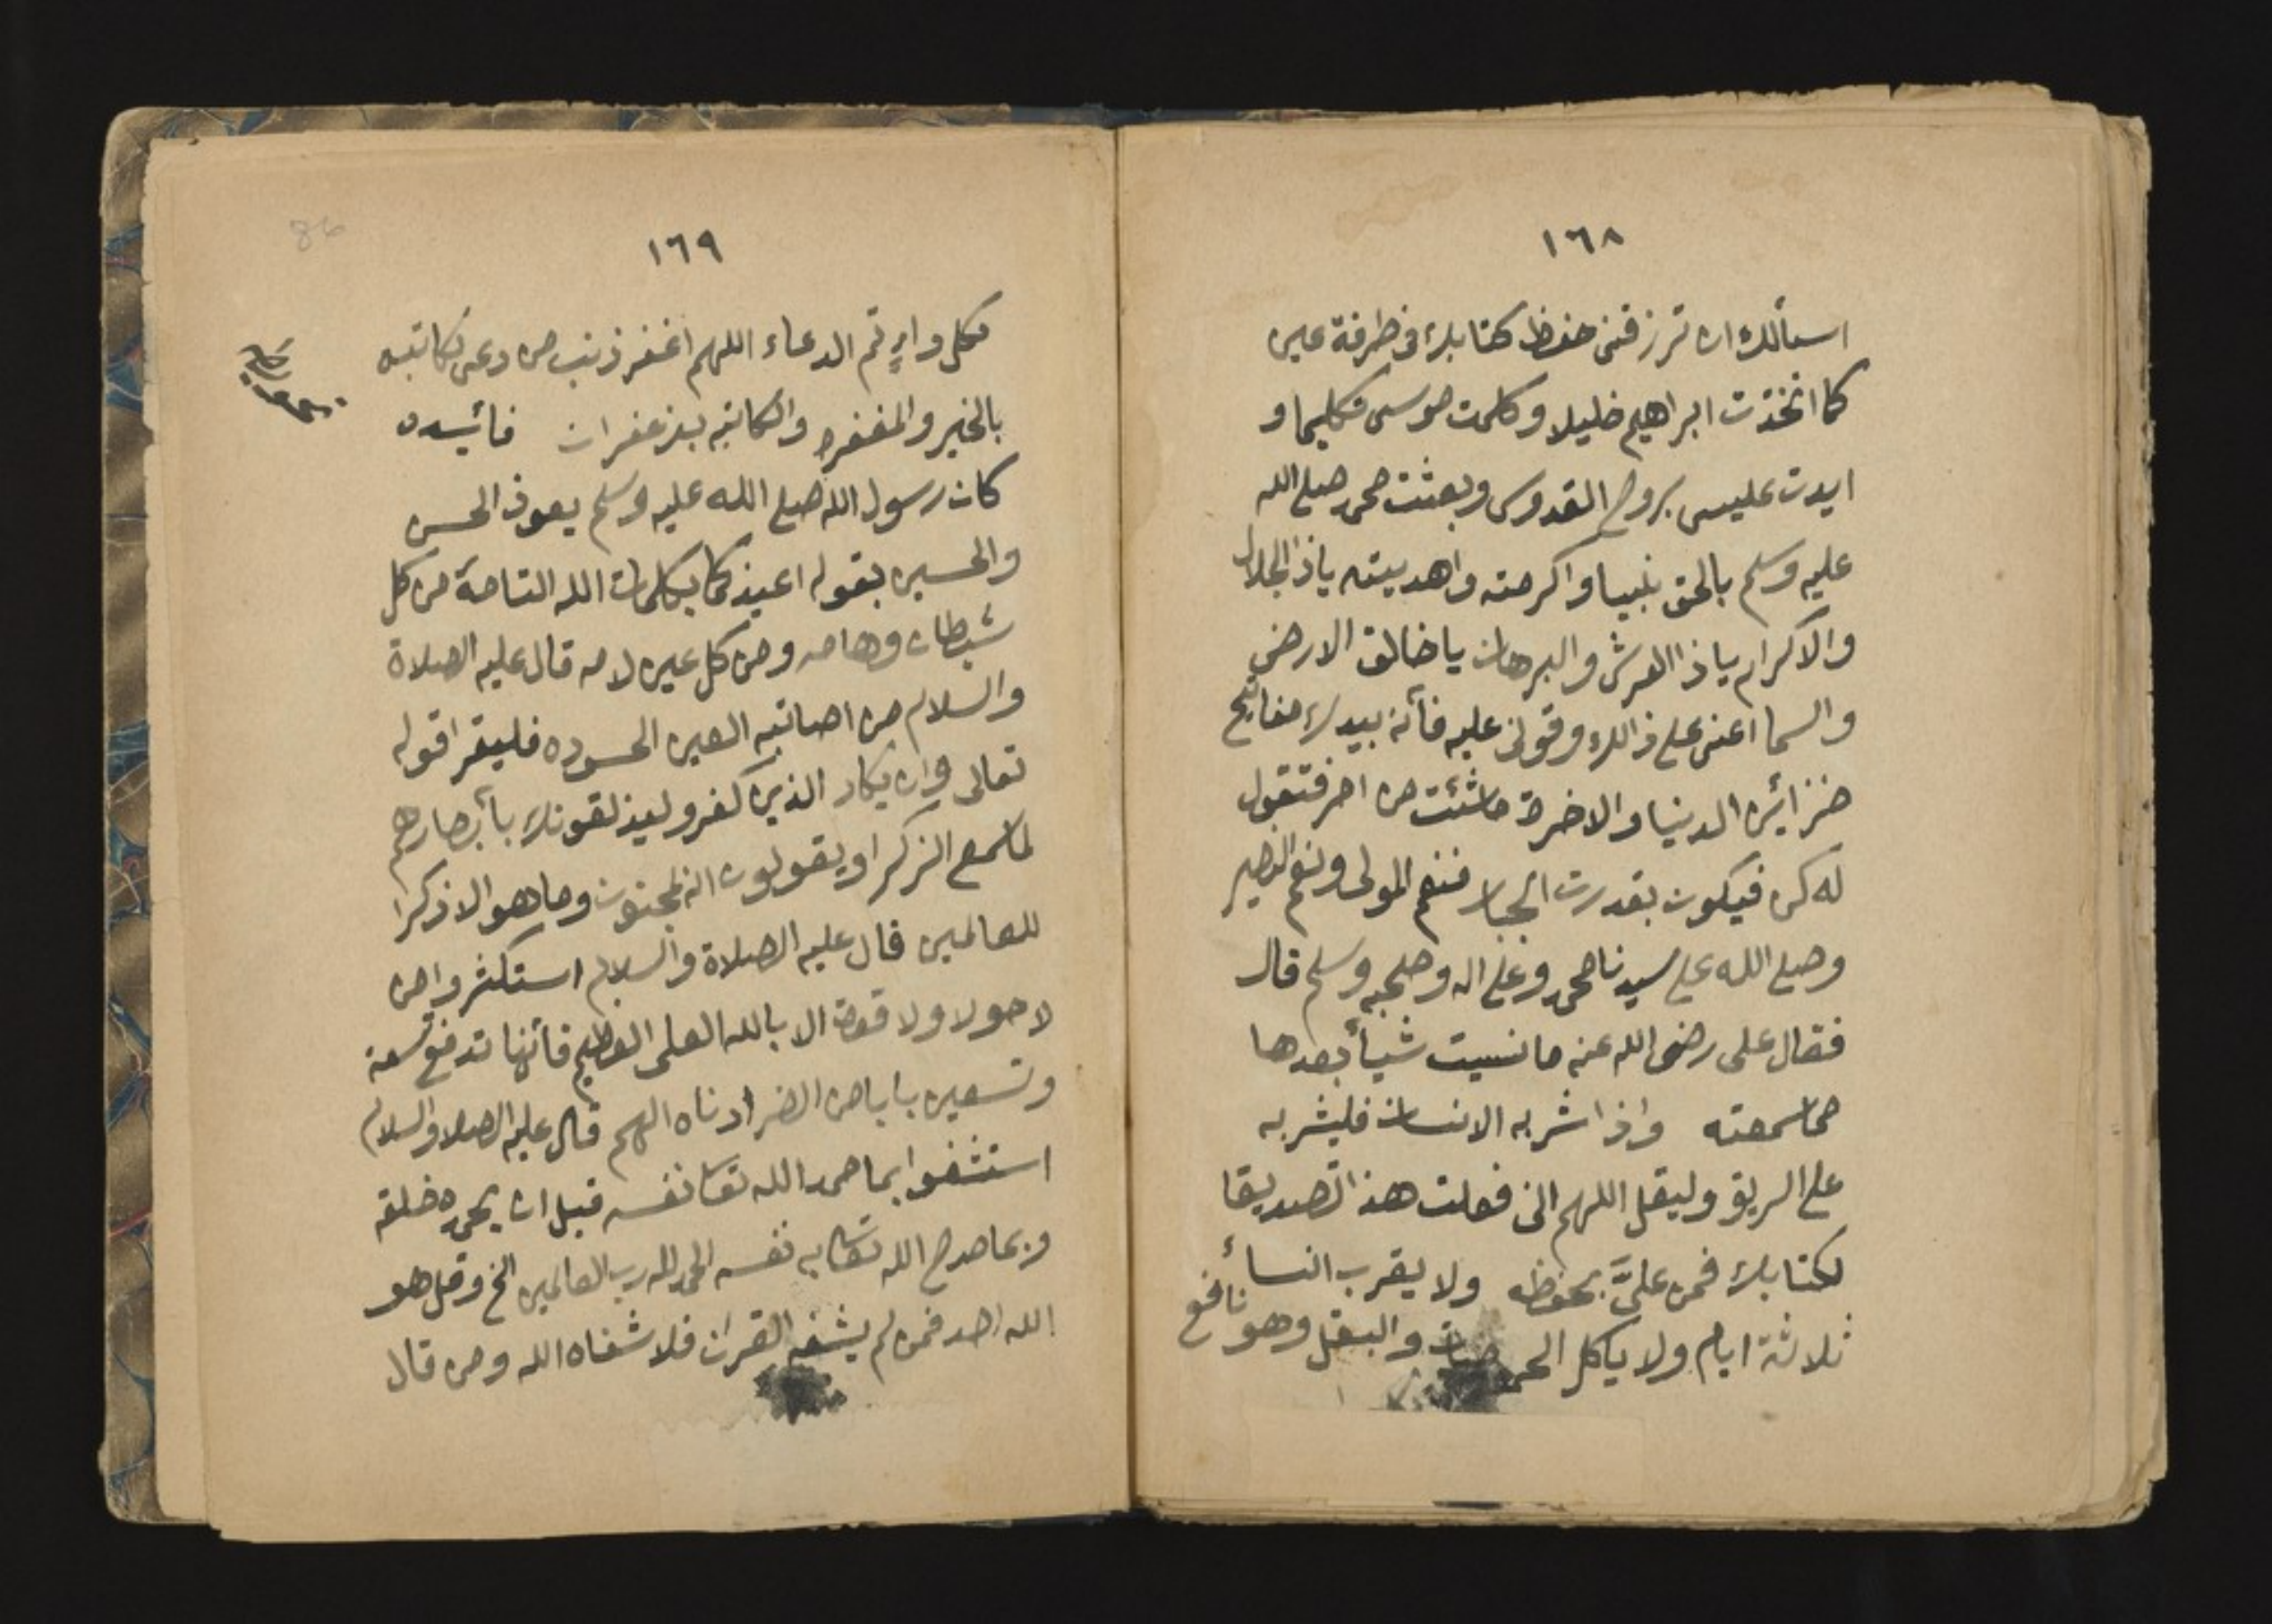 ١٦٨
اسألك ان ترزقنى حفظ كتابك فى طرفة عين
كما اتخذت ابراهيم خليلا وكلمت موسى تكليما و
ايدت عليسى بروح القدوس وبعثت محمد صلى الله
عليه وسلم بالحق نبيا واكرمته واهديته ياذالجلال
والاكرام ياذا العرش والبرهان ياخالق الارض
والسما اعنى على ذالك وقونى عليه فأنه بيدك مفاتيح
خزائن الدنيا والاخرة ماشئت من امر فتقول
له كن فيكون بقدرت الجبار فنعم المولى ونعم النصير
وصلى الله على سيدنا محمد وعلى اله وصحبه وسلم قال
فقال على رضى الله عنه مانسيت شيأ بعدها
مماسمعته واذا شربه الانسان فليشربه
على الريق وليقل اللهم انى فعلت هذا تصديقا
لكتابك فمن علىَّ بحفظه ولا يقرب النسأ
ثلاثة ايام ولا ياكل الحمضيات والبقل وهو نافع
١٦٩
لكل داءٍ تم الدعاء اللهم اغفر ذنب من دعى لكاتبه
بالخير والمغفره والكاتبه بزعفران فائيده
كان رسول الله صلى الله عليه وسلم يعوذ الحسن
والحسين بقوله اعيذكما بكلمات الله التامة من كل
شيطان وهامه ومن كل عين لامه قال عليه الصلاة
والسلام من اصابته العين الحسوده فليقرا قوله
تعالى وان يكاد الذين كفرو ليذلقونك بأبصارهم
لماسمع الزكرا ويقولون انه لمجنون وماهو الا ذكرا
للعالمين قال عليه الصلاة والسلام استكثروا من
لاحولا ولا قوة الا بالله العلى العظيم فأنها تدفع تسعة
وتسعين بابا من الضر ادناه الهم قال عليه الصلا والسلام
استشفوا بما حمد الله تعا نفسه قبل ان يحمده خلقه
وبما مدح الله تعا به نفسه الحمد لله رب العالمين الخ وقل هو
الله احد فمن لم يشفه القران فلا شفاه الله ومن قال